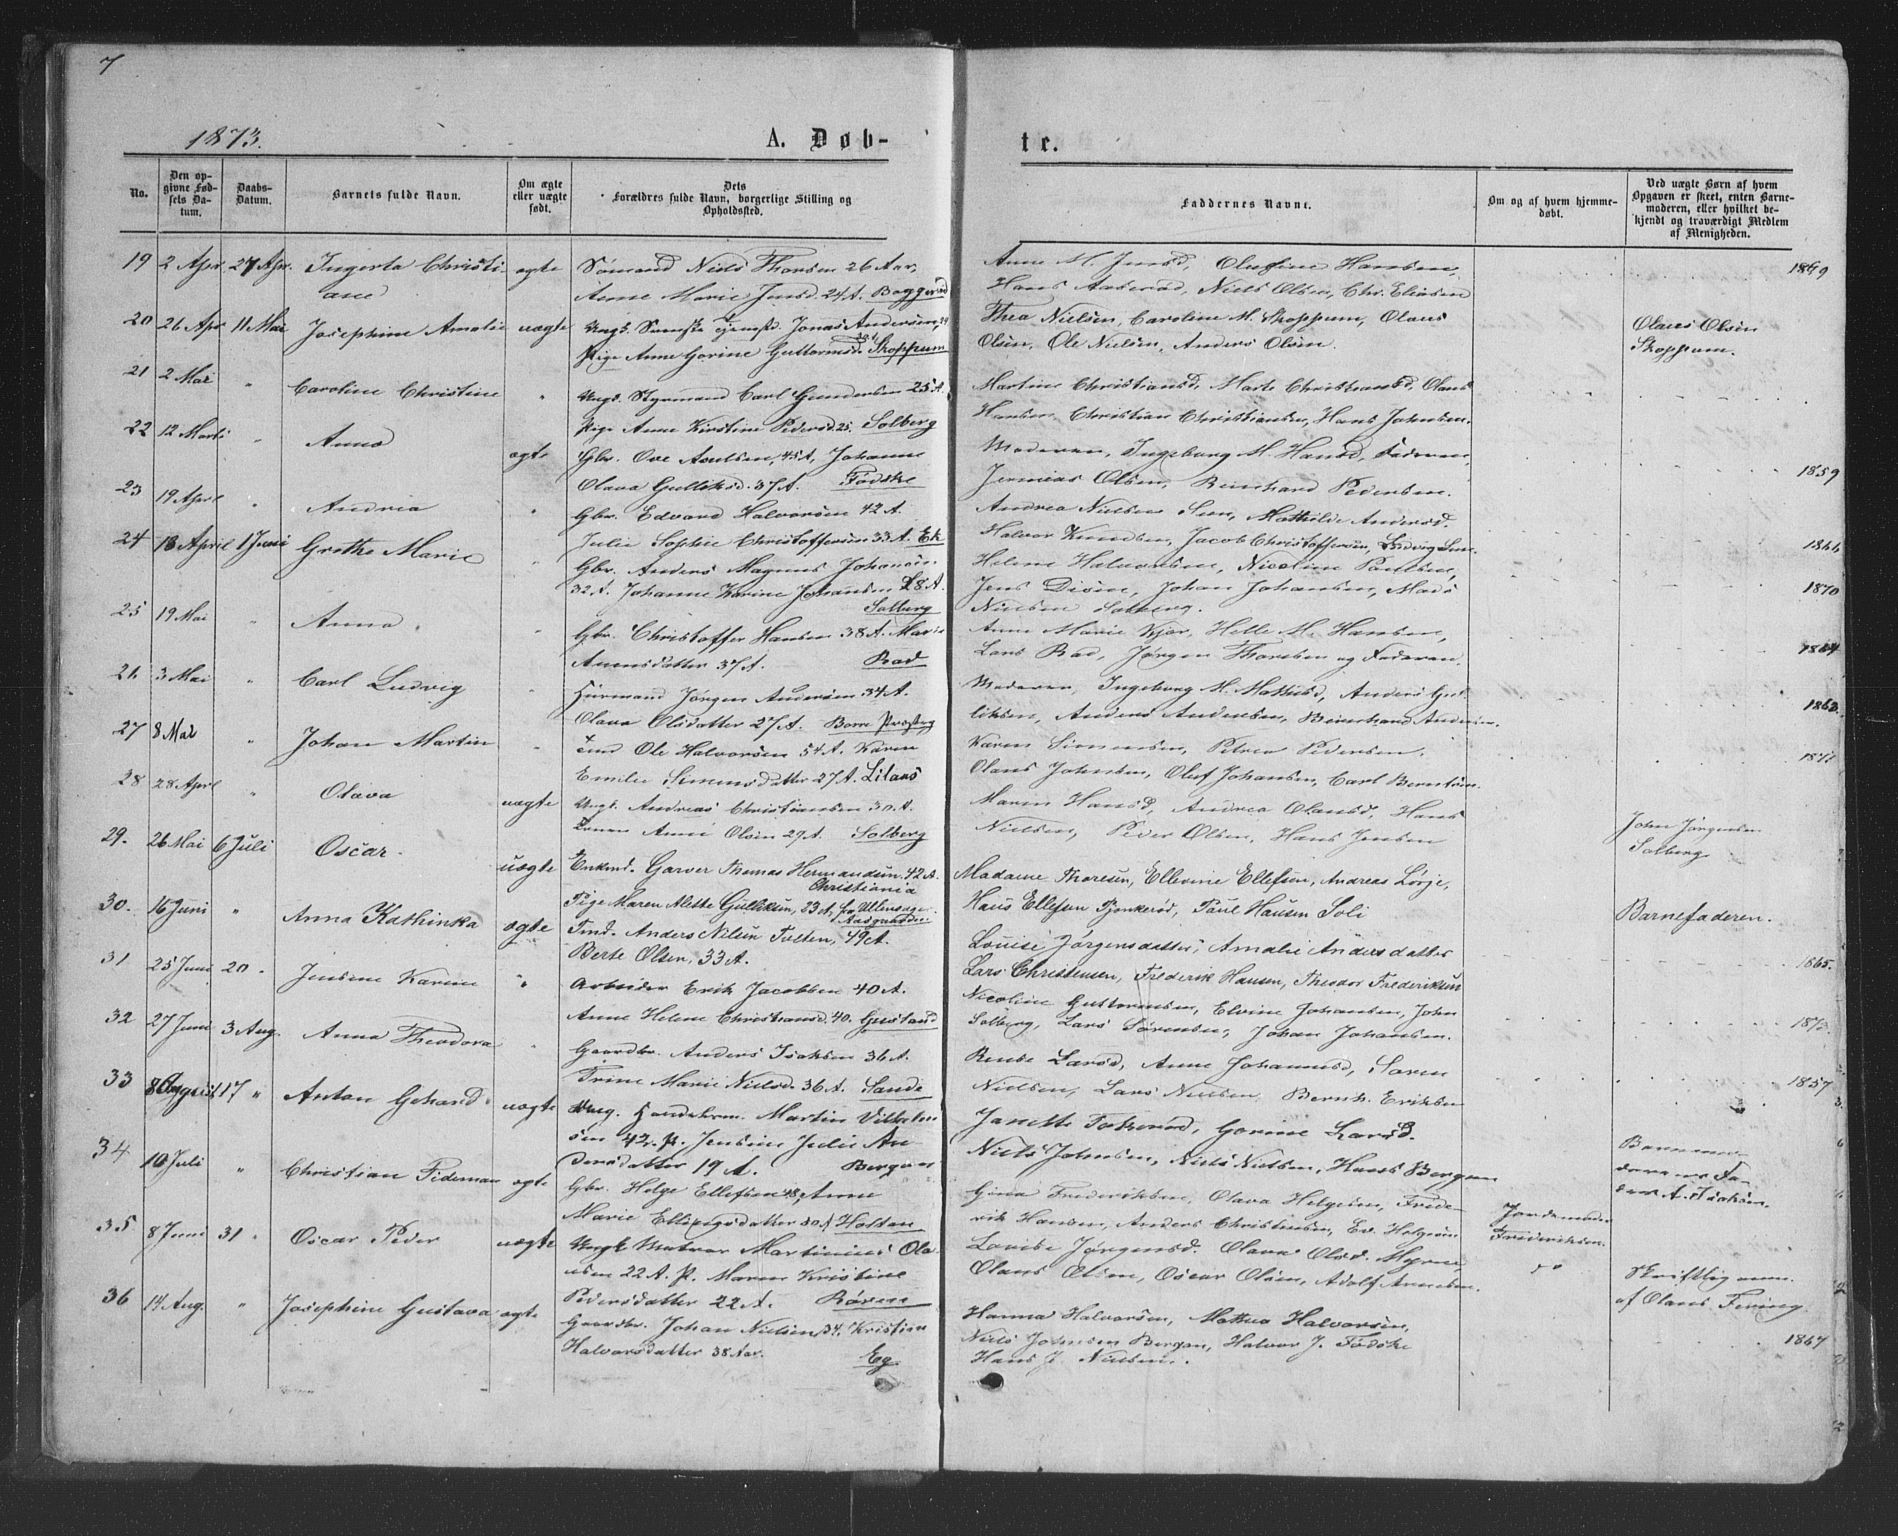 7
1873.
A. Døb-
te.
No.
Den op-
givne Fød-
sels Da-
tum.
Daabs-
Datum.
Barnets fulde Navn.
Om ægte
eller uægte
født.
Dets
Forældres fulde Navn, borgerlige Stilling og
Opholdssted.
Faddernes Navne.
Om og af hvem hjemme-
døbt.
Ved uægte Børn af hvem
Opgaven er skeet, enten Barne-
moderen, eller hvilket be-
kjendt og troværdigt Medlem
af Menigheden.
19 2 Apr. 27 Apr. Ingerta Christi
ane
ægte
Sømand Niels Thorsen 26 Aar,
Anne Marie Jensd. 24 A. Baggerød
Anne M. Jensd, Olufine Hansen,
Hans Aaserød, Niels Olsen, Chr. Eliasen
1869
20 26 Apr 11 Mai Josephine Amalie uægte
Ungk. Svenske Jonas Andersen, 29
Pige Anne Gorine Guttormsd. Skoppum
Thea Nielsen, Caroline M. Skoppum, Olaus
Olsen, Ole Nielsen, Anders Olsen.
Olaus Olsen
Skoppum.
21 2 Mai " Caroline Christine "
Ungk. Styrmand Carl Gundersen 25 A.
Pige Anne Kirstine Pedersd. 25. Solberg
Martine Christiansd, Marte Christiansd, Olaus
Hansen, Christian Christiansen, Hans Johnsen.
22 12 Marti " Anna ægte
Gbr. Ove Axelsen, 45 A, Johanne
Olava Gulliksd. 37 A. Fødske
Moderen, Ingeborg M. Hansd, Faderen,
Jermias Olsen, Bernhard Pedersen.
1859
23 19 April " Andrea "
Gbr. Edvard Halvorsen 42 A.
Julie Sophie Christoffersen 33 A. Ek
Andrea Nielsen Sem, Mathilde Andersd.
Halvor Knudsen, Jacob Christoffersen, Ludvig Sem
1866
24 18 April 1 Juni Grethe Marie "
Gbr. Anders Magnus Johansen
32 A. Johanne Karine Johansen 28 A.
Solberg
Helene Halvorsen, Nicoline Paulsen,
Jens Disen, Johan Johansen, Mads
Nielsen Solberg.
1870
25 19 Mai " Anna "
Gbr. Christoffer Hansen 38 A. Marie
Amundsdatter 37 A. Rad
Anne Marie Kjær, Helle M. Hansen,
Lars Rad, Jørgen Thoresen og Faderen.
1864
26 3 Mai " Carl Ludvig "
Huusmand Jørgen Andersen 34 A.
Olava Olsdatter 27 A. Borre Præsteg
Moderen, Ingeborg M. Mathisd, Anders Gul
liksen, Anders Andersen, Bernhard Andersen.
1863
27 8 Mai " Johan Martin "
Ole Halvorsen 54 A. Karen
Emilie Simensdatter 27 A. Liaas
Karen Simensen, Petrea Pedersen,
Olaus Johnsen, Oluf Johansen, Carl Berntsen
28 28 April " Olava uægte
Ungk. Andreas Christiansen 30 A.
Anne Olsen 27 A. Solberg
Maren Hansd, Andrea Olausd, Hans
Nielsen, Peder Olsen, Hans Jensen
John Jørgensen
Solberg
29. 26 Mai 6 Juli Oscar uægte
Enkemd. Garver Thomas Hermandsen. 42 A.
Christiania
Pige Maren Alette Gulliksen, 23 A. fra
Madame Thoresen, Ellevine Ellefsen, Andreas Lørje,
Hans Ellefsen Fjonkerød, Paul Hansen Soli
Barnefaderen.
30. 16 Juni " Anna Kathinka ægte
Tmd. Anders Nilsen Tveten, 49 A.
Berte Olsen, 33 A.
Louise Jørgensdatter, Amalie Andersdatter
Lars Christensen, Frederik Hansen, Theodor Frederiksen
1865.
31 25 Juni 20 " Jensine Karine "
Arbeider Erik Jacobsen 40 A.
Anne Helene Christiansd. 40. Gustand
Nicoline Guttormsen, Elvine Johansen, John
Solberg, Lars Sørensen, Johan Johansen.
32 27 Juni 3 Aug. Anna Theodora "
Gaardbr. Anders Isaksen 36 A.
Trine Marie Nielsd. 36 A. Sande
Larsd, Anne Johannesd, Søren
Nielsen, Lars Nielsen, Bernh. Eriksen
1857
33 8 August 17 " Anton Gehard uægte
Ungk. Martin Vilhelm
sen 42. P. Jensine Julie An
dersdatter 19 A. Bergan
Janette Fokserød, Gorine Larsd.
Niels Johnsen, Niels Nielsen, Hans Bergan
34 10 Juli " Christian Fideman ægte
Gbr. Helge Ellefsen 48, Anne
Marie Ellingsdatter 30 A Holtan
Gina Frederiksen, Olava Helgesen, Frede-
rik Hansen, Anders Christensen, Ev. Helgesen
Jordemoder
Frederiksen.
35 8 Juni 31 " Oscar Peder uægte
Ungk. Matros Martinius Ola
usen 22 A. P. Maren Kristine
Pedersdatter 22 A. Røren
Lovise Jørgensd. Olava Olsd. Myrene,
Olaus Olsen, Oscar Olsen, Adolf Arnesen.
Skriftlig
af Olaus Freving
36 14 Aug. " Josephine Gustava ægte
Gaardbr. Johan Nielsen 34. Kristine
Halvorsdatter 38 Aar. Eg
Hanna Halvorsen, Mathea Halvorsen,
Niels Johnsen Bergan, Halvor J. Fødske
Hans J. Nielsen.
1867